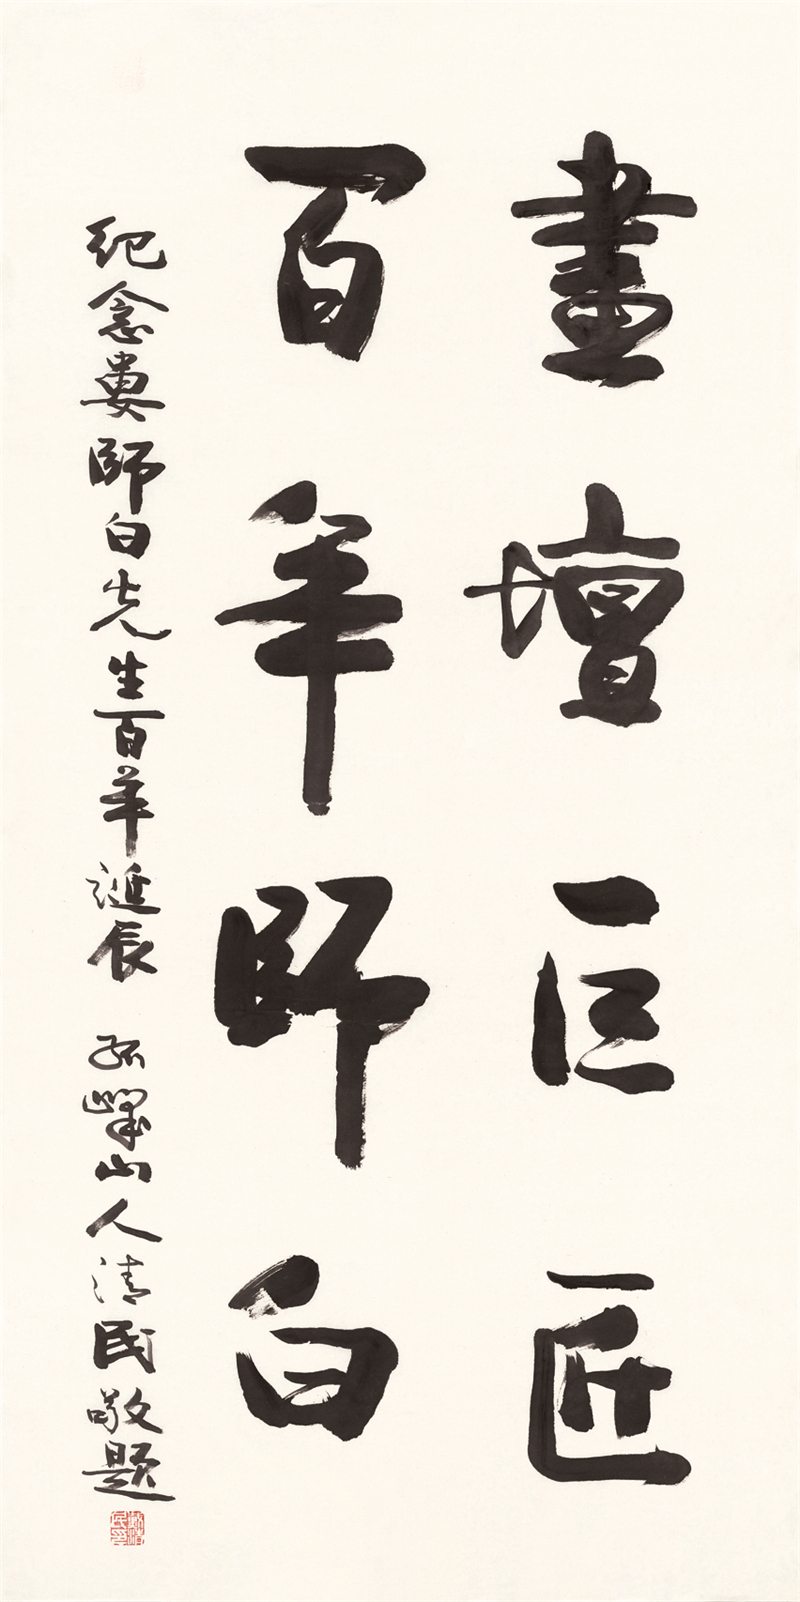 畫壇巨匠
百年師白
纪念婁師白先生百年诞辰 孤嶧山人清民敬题